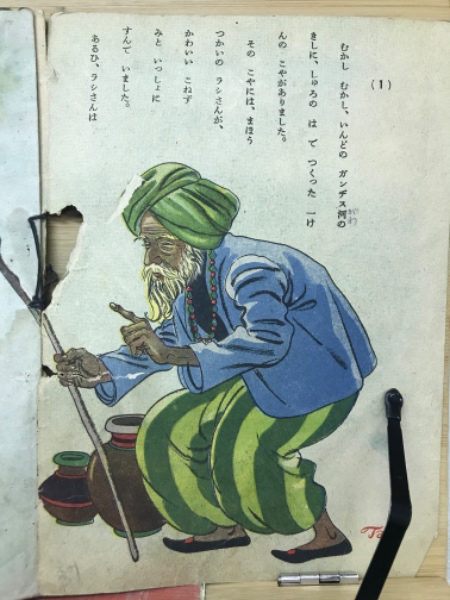 (1)
むかし むかし、いんどの ガンヂス河の
がわ
きしに、しゅろの は で つくった 一け
んの こやがありました。
その こやには、まほう
つかいの ラシさんが、
かわいい こねず
みと いっしょに
すんで いました。
あるひ、ラシさんは